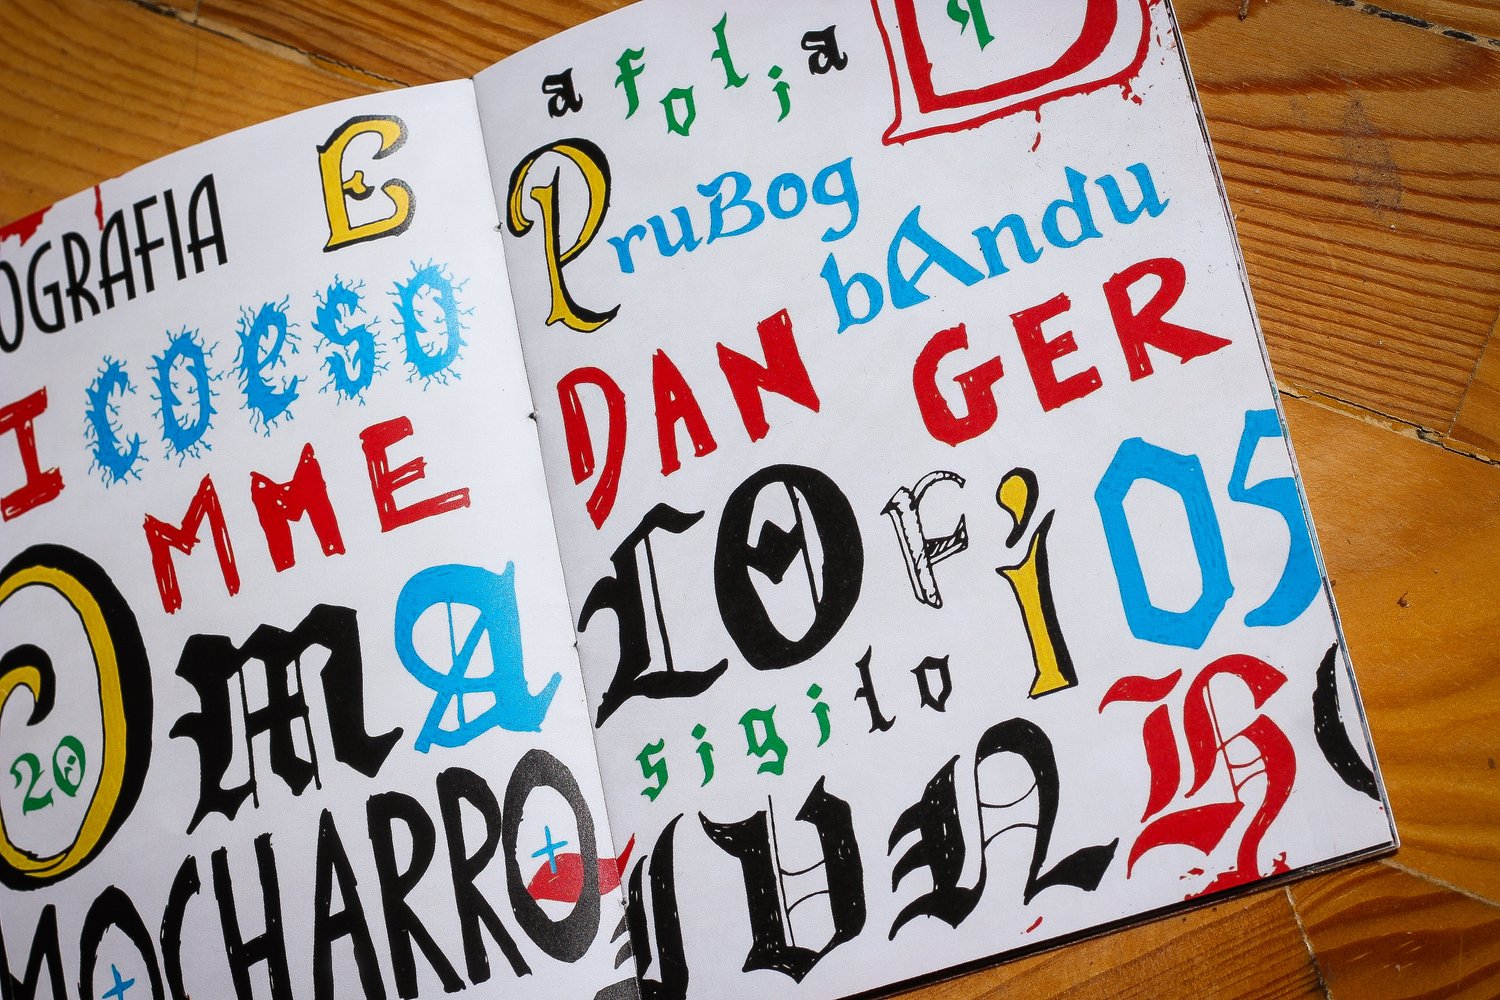 OGRAFIA E
I coeso
MME
O ma
20
MOCHARRO
a folia
PruBog
bAndu
DAN GER
LOFi 05
sigilo
JUNH